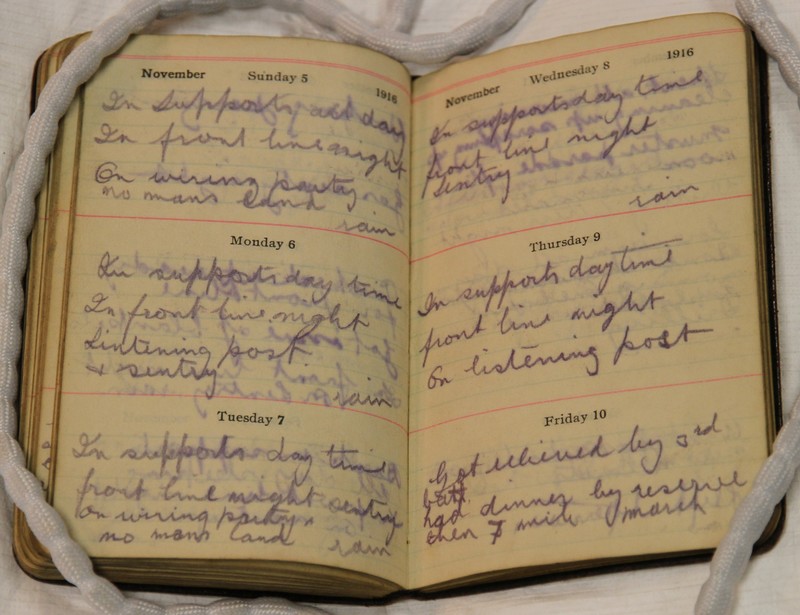 November Sunday 5 1916
In Supports all day
In front line night
On wiring party
no mans land
rain
Monday 6
In supports day time
In front line night
Lintening post
& sentry rain
Tuesday 7
In supports day time
front line night sentry
on wiring party
no mans land rain
November Wednesday 8 1916
In supports day time
front line night
sentry
rain
Thursday 9
In supports day time
front line night
On listening post
Friday 10
Got relieved by 3rd
batt.
had dinner by reserve
then 7 mile march